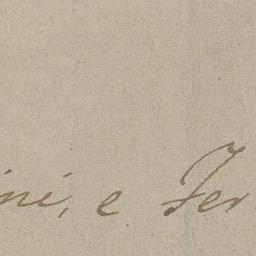 ini, e Fer